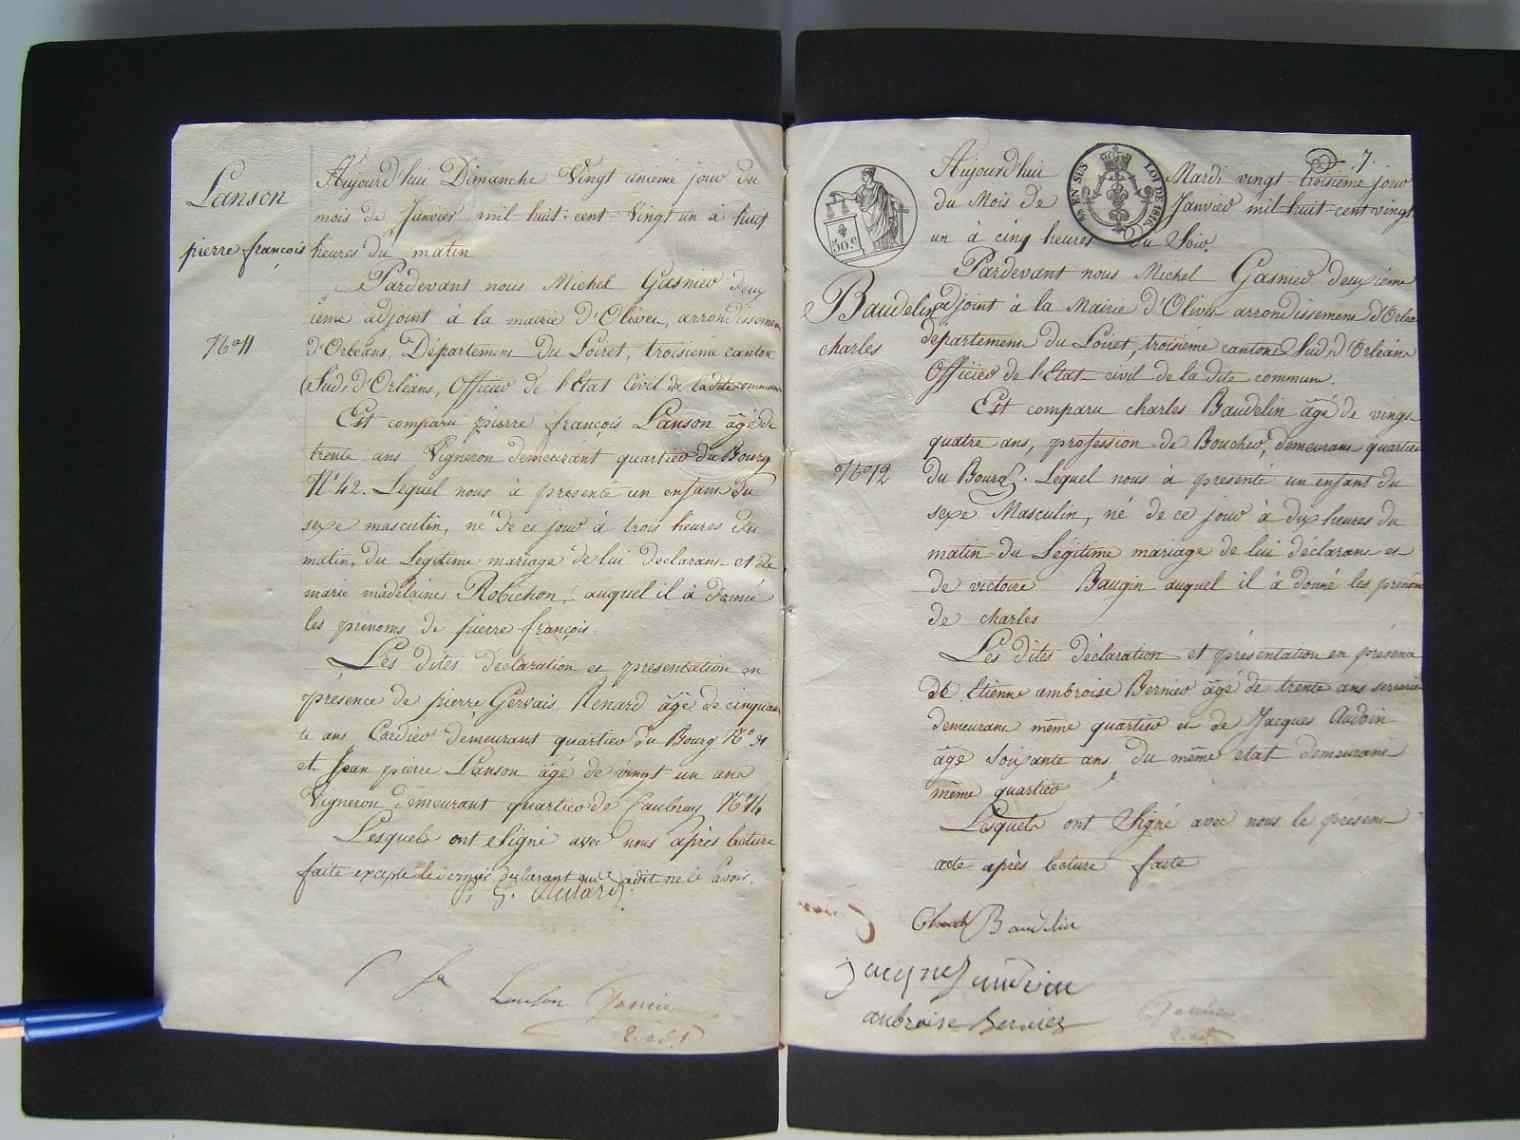 Lanson
pierre françois
N.º 11
Aujourd'hui Dimanche Vingt unieme jour du
mois de Janvier mil huit-cent Vingt un à huit
heures du matin
Pardevant nous Michel Gasnier deux
ieme adjoint à la mairie d'Olivet, arrondissement
d'Orleans, Département du Loiret, troisieme canton
Sud, d'Orléans, Officier de l'Etat Civil de la dite commune
Est comparu pierre françois Lanson âgé de
trente ans Vigneron demeurant quartier du Bourg
N.º 42. Lequel nous à présenté un enfant du
sexe masculin, né de ce jour à trois heures du
matin, du Legitime mariage de lui declarant et de
marie madelaine Robichon, auquel il à donné
les prenoms de pierre françois.
Les dites declaration et presentation en
présence de pierre Gervais Renard âgé de cinquan
te ans Cordier demeurant quartier du Bourg N.º 31
et Jean pierre Lanson âgé de vingt un ans
Vigneron demeurant quartier de Caubray N.º 14
Lesquels ont signé avec nous après lecture
faite excepté le declarant qui a dit ne le savoir.
P. G. Renard
Lanson Gasnier
2. adj.t
7.
EN SUS
LOI DE 1816
50 c
Baudelin
charles
N.º 12
Aujourd'hui Mardi vingt-troisieme jour
du Mois de Janvier mil-huit-cent-vingt
un à cinq heures du Soir.
Pardevant nous Michel Gasnier deuxième
adjoint à la Mairie d'Olivet arrondissement d'Orléan
département du Loiret, troisième canton Sud, d'Orléans
Officier de l'Etat civil de la dite commune.
Est comparu charles Baudelin âgé de vingt
quatre ans, profession de Boucher, demeurant quartier
du Bourg. Lequel nous à présenté un enfant du
sexe Masculin, né de ce jour à dix heures du
matin du Légitime mariage de lui déclarant et
de victoire Baugin auquel il à donné les prénom
de charles
Les dites déclaration et présentation en présence
de Etienne ambroise Bernier âgé de trente ans serrurier
demeurant même quartier et de Jacques Audoin
âgé soixante ans du même etat demeurant
même quartier
Lesquels ont Signé avec nous le présent
acte après lecture faite
Baudelin
jacque audoin
ambroise Bernier
Gasnier
2. adj.t